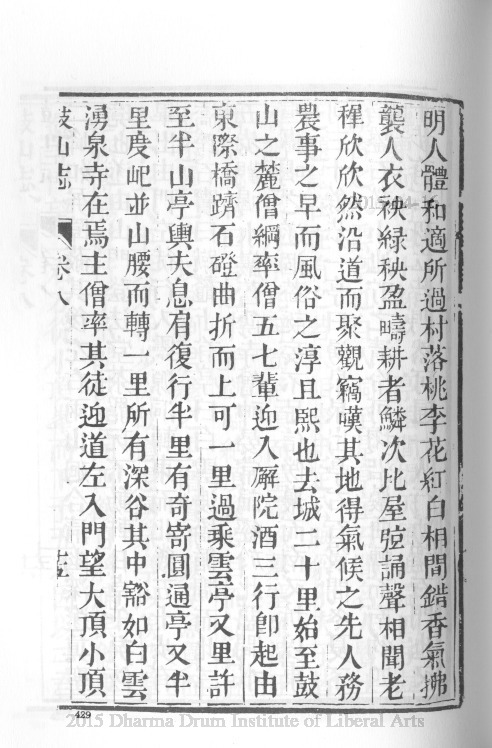 明人體和適所過村落桃李花紅白相間錯香氣拂
襲人衣袂綠秧盈疇耕者鱗次比屋弦誦聲相聞老
穉欣欣然沿道而聚觀竊嘆其地得氣候之先人務
農事之早而風俗之淳且熙也去城二十里始至鼓
山之麓僧綱率僧五七輩迎入廨院酒三行卽起由
東際橋躋石磴曲折而上可一里過乘雲亭又里許
至半山亭輿夫息肩復行半里有奇寄圓通亭又半
里度屺並山腰而轉一里所有深谷其中豁如白雲
湧泉寺在焉主僧率其徒迎道左入門望大頂小頂
鼓山志 卷八
429
2015 Dharma Drum Institute of Liberal Arts